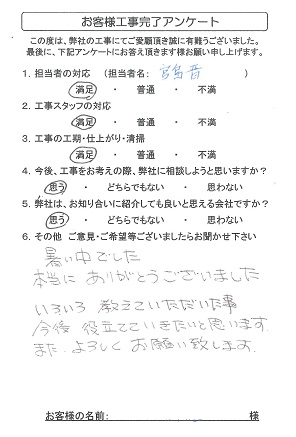 お客様工事完了アンケート
この度は、弊社の工事にてご愛願頂き誠に有難うございました。
最後に、下記アンケートにお答え頂きます様お願い申し上げます。
1. 担当者の対応 (担当者名: 宮島 )
満足 ・ 普通 ・ 不満
2. 工事スタッフの対応
満足 ・ 普通 ・ 不満
3. 工事の工期・仕上がり・清掃
満足 ・ 普通 ・ 不満
4. 今後、工事をお考えの際、弊社に相談しようと思いますか?
思う ・ どちらでもない ・ 思わない
5. 弊社は、お知り合いに紹介しても良いと思える会社ですか?
思う ・ どちらでもない ・ 思わない
6. その他 ご意見・ご希望等ございましたらお聞かせ下さい
暑い中でした
本当に ありがとうございました
いろいろ 教えていただいた事
今後 役立てていきたいと思います
また よろしく お願い致します
お客様の名前: 様